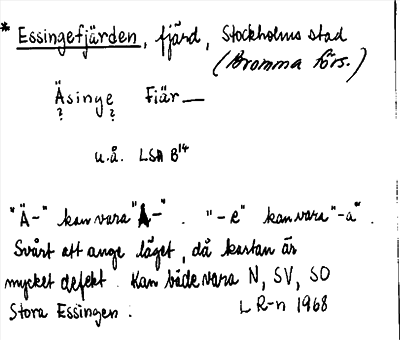 * Essingefjärden, fjärd, Stockholms stad
(Bromma förs.)
Äsinge Fiär—
? ?
u.å. LSA B14
"Ä-" kan vara "Å-". "-e" kan vara "-a".
Svårt att ange läget, då kartan är
mycket defekt. Kan både vara N, SV, SO
Stora Essingen.
L R-n 1968